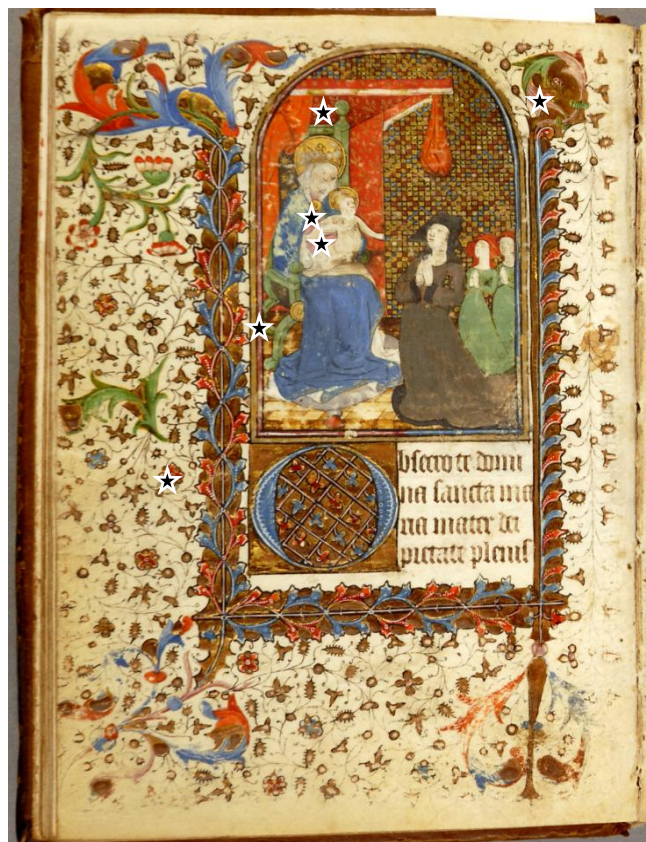 Obsecro te domi
na sancta ma
ria mater dei
pietate plenis